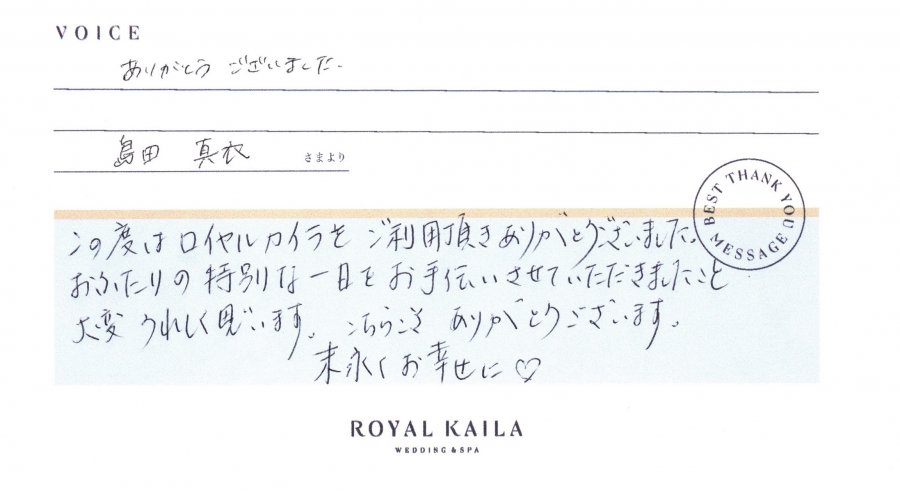 VOICE
ありがとう ございました.
島田 真衣 さまより
BEST THANK YOU MESSAGE
この度はロイヤルカイラをご利用頂きありがとうございました。
おふたりの特別な一日をお手伝いさせていただきましたこと
大変うれしく思います。こちらこそ ありがとうございます。
末永くお幸せに♡
ROYAL KAILA
WEDDING & SPA